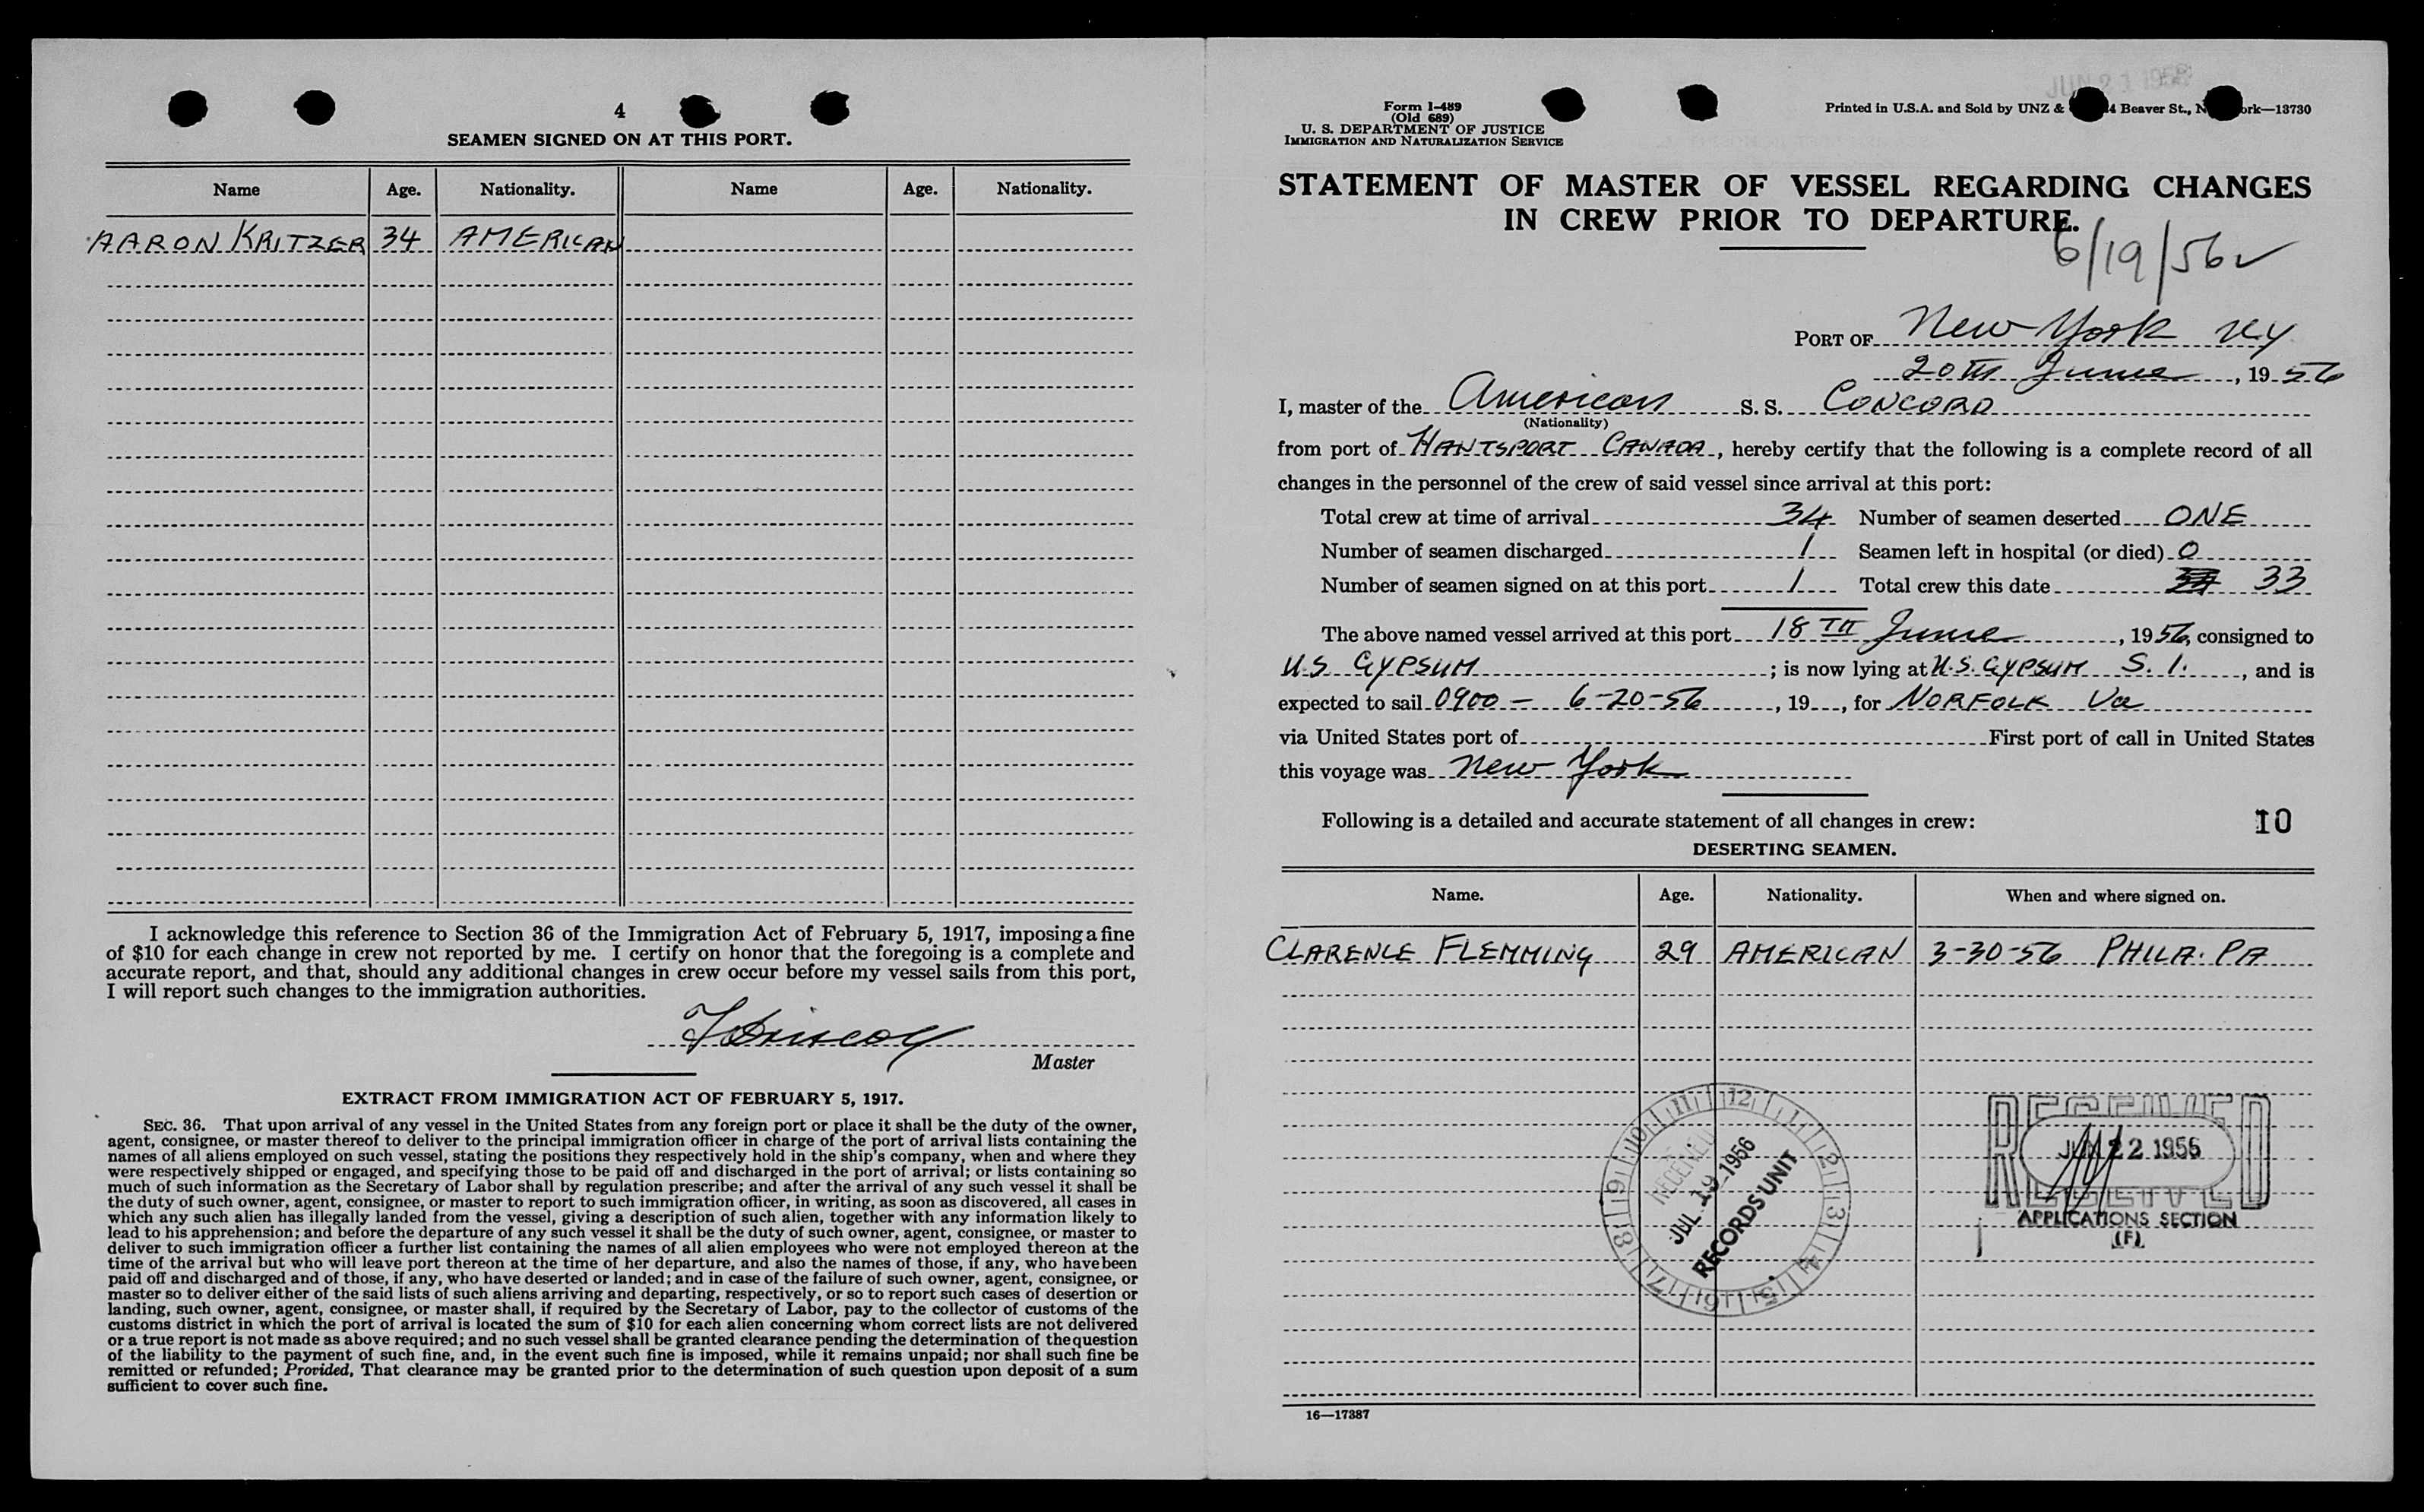 4
SEAMEN SIGNED ON AT THIS PORT.
Name Age. Nationality. Name Age. Nationality.
AARON KRITZER 34 AMERICAN
I acknowledge this reference to Section 36 of the Immigration Act of February 5, 1917, imposing a fine
of $10 for each change in crew not reported by me. I certify on honor that the foregoing is a complete and
accurate report, and that, should any additional changes in crew occur before my vessel sails from this port,
I will report such changes to the immigration authorities.
Master
EXTRACT FROM IMMIGRATION ACT OF FEBRUARY 5, 1917.
SEC. 36. That upon arrival of any vessel in the United States from any foreign port or place it shall be the duty of the owner,
agent, consignee, or master thereof to deliver to the principal immigration officer in charge of the port of arrival lists containing the
names of all aliens employed on such vessel, stating the positions they respectively hold in the ship's company, when and where they
were respectively shipped or engaged, and specifying those to be paid off and discharged in the port of arrival; or lists containing so
much of such information as the Secretary of Labor shall by regulation prescribe; and after the arrival of any such vessel it shall be
the duty of such owner, agent, consignee, or master to report to such immigration officer, in writing, as soon as discovered, all cases in
which any such alien has illegally landed from the vessel, giving a description of such alien, together with any information likely to
lead to his apprehension; and before the departure of any such vessel it shall be the duty of such owner, agent, consignee, or master to
deliver to such immigration officer a further list containing the names of all alien employees who were not employed thereon at the
time of the arrival but who will leave port thereon at the time of her departure, and also the names of those, if any, who have been
paid off and discharged and of those, if any, who have deserted or landed; and in case of the failure of such owner, agent, consignee, or
master so to deliver either of the said lists of such aliens arriving and departing, respectively, or so to report such cases of desertion or
landing, such owner, agent, consignee, or master shall, if required by the Secretary of Labor, pay to the collector of customs of the
customs district in which the port of arrival is located the sum of $10 for each alien concerning whom correct lists are not delivered
or a true report is not made as above required; and no such vessel shall be granted clearance pending the determination of the question
of the liability to the payment of such fine, and, in the event such fine is imposed, while it remains unpaid; nor shall such fine be
remitted or refunded; Provided, That clearance may be granted prior to the determination of such question upon deposit of a sum
sufficient to cover such fine.
JUN 21 1956
Form I-489
(Old 689)
U. S. DEPARTMENT OF JUSTICE
IMMIGRATION AND NATURALIZATION SERVICE
Printed in U.S.A. and Sold by UNZ & 4 Beaver St., N ork—13730
STATEMENT OF MASTER OF VESSEL REGARDING CHANGES
IN CREW PRIOR TO DEPARTURE.
6/19/56 ✓
PORT OF New York NY
20TH June, 1956
I, master of the American S. S. CONCORD
(Nationality)
from port of HANTSPORT CANADA, hereby certify that the following is a complete record of all
changes in the personnel of the crew of said vessel since arrival at this port:
Total crew at time of arrival 34 Number of seamen deserted ONE
Number of seamen discharged 1 Seamen left in hospital (or died) 0
Number of seamen signed on at this port 1 Total crew this date 33
The above named vessel arrived at this port 18TH June, 1956, consigned to
U.S. GYPSUM ; is now lying at U.S. GYPSUM S. I., and is
expected to sail 0900 — 6-20-56, 19 , for NORFOLK Va
via United States port of First port of call in United States
this voyage was New York
Following is a detailed and accurate statement of all changes in crew: 10
DESERTING SEAMEN.
Name. Age. Nationality. When and where signed on.
CLARENCE FLEMMING 29 AMERICAN 3-30-56 PHILA. PA
11 12 1 2 3 4 5 6 7 8 9 10
RECEIVED
JUL 19 1956
RECORDS UNIT
RECEIVED
JUN 22 1956
RECEIVED
APPLICATIONS SECTION
(F)
16—17387